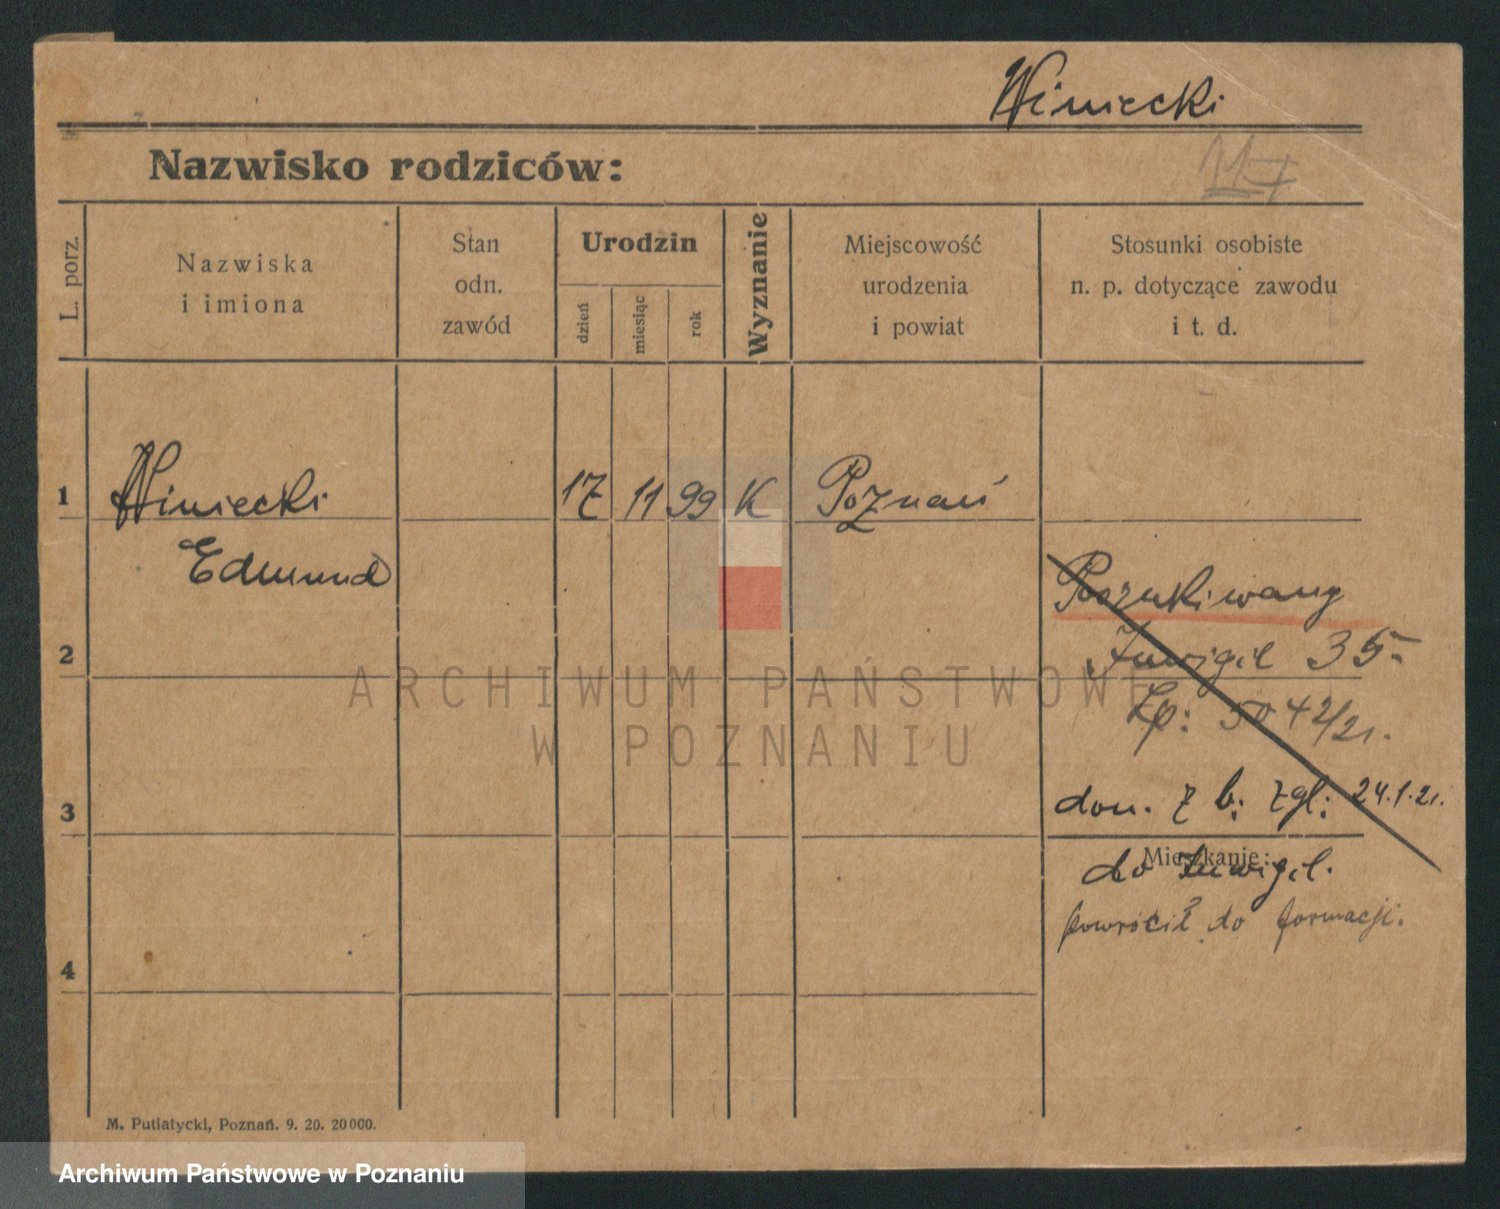 Winiecki
Nazwisko rodziców:
L. porz.
Nazwiska
i imiona
Stan
odn.
zawód
Urodzin
dzień
miesiąc
rok
Wyznanie
Miejscowość
urodzenia
i powiat
Stosunki osobiste
n. p. dotyczące zawodu
i t. d.
1 Winiecki 17 11 99 K Poznań
Edmund
Poszukiwany
Inwigil 35.
2
Lp: 5042/21.
3 don. z b. zgl: 24.1.21.
Mieszkanie:
do Inwigil.
powrócił do formacji.
4
M. Putiatycki, Poznań. 9. 20. 20000.
ARCHIWUM PAŃSTWOWE
W POZNANIU
Archiwum Państwowe w Poznaniu